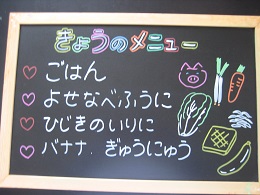 きょうのメニュー
ごはん
よせなべふうに
ひじきのいりに
バナナ. ぎゅうにゅう